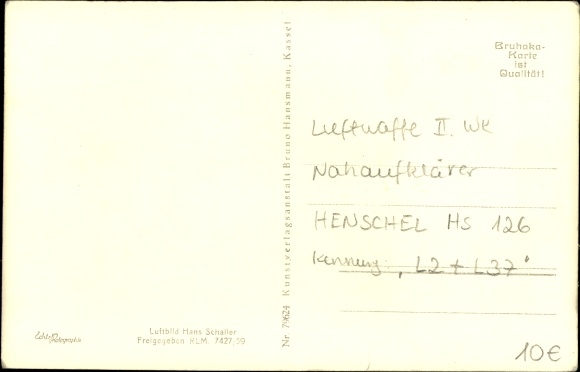 Bruhaka-
Karte
ist
Qualität!
Luftwaffe II. WK
Nahaufklärer
HENSCHEL HS 126
Kennung „L2+L37"
10€
Nr. 79624 Kunstverlagsanstalt Bruno Hansmann, Kassel
Echte Photographie
Luftbild Hans Schaller
Freigegeben RLM. 7427/39